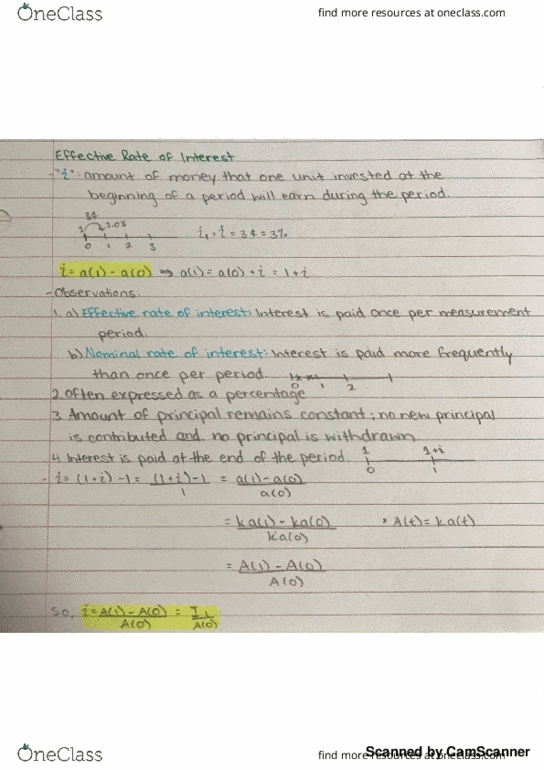 OneClass
find more resources at oneclass.com
Effective Rate of Interest
- "i": amount of money that one unit invested at the
beginning of a period will earn during the period.
3¢
1 1.03
0 1 2 3
i₁ = i = 3¢ = 3%
i = a(1) - a(0) ⇒ a(1) = a(0) + i = 1 + i
- Observations:
1. a) Effective rate of interest: Interest is paid once per measurement
period.
b) Nominal rate of interest: Interest is paid more frequently
than once per period.
0 1 2
2. Often expressed as a percentage
3. Amount of principal remains constant; no new principal
is contributed and no principal is withdrawn
4. Interest is paid at the end of the period.
1 1+i
0 1
- i = (1+i) - 1 = (1+i) - 1 / 1 = a(1) - a(0) / a(0)
= ka(1) - ka(0) / ka(0) * A(t) = ka(t)
= A(1) - A(0) / A(0)
So, i = A(1) - A(0) / A(0) = I₁ / A(0)
OneClass
find more resources at oneclass.com
Scanned by CamScanner